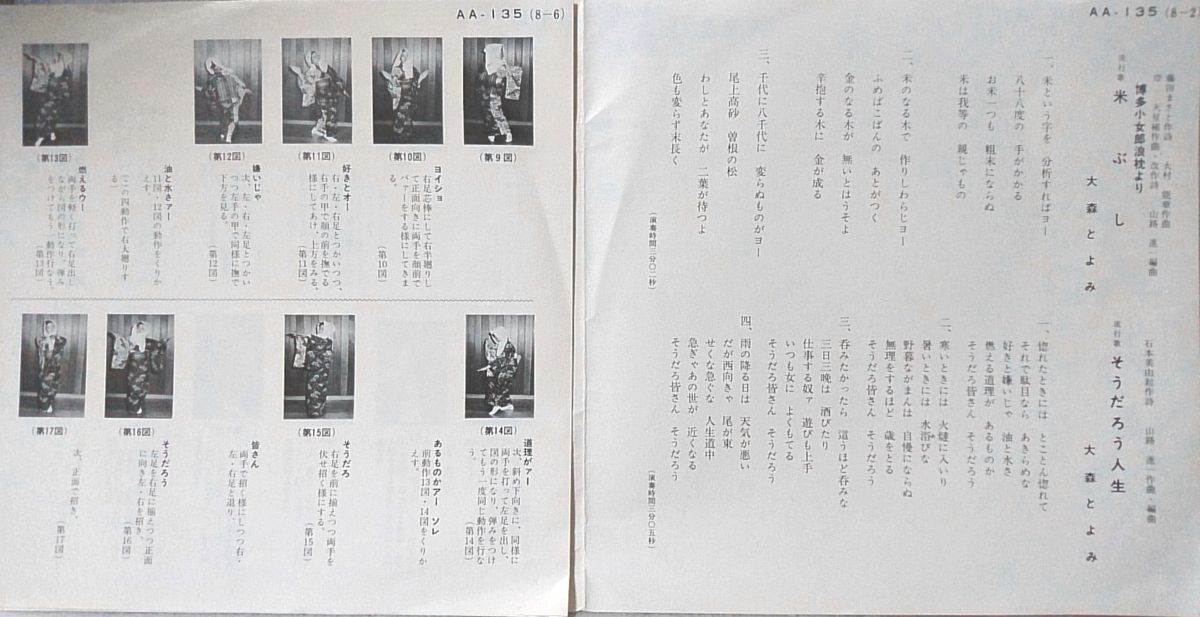 AA-135(8-6)
(第9図)
(第10図)
(第11図)
(第12図)
(第13図)
ヨイショ
右足芯棒にして右半廻りし
て正面向きに両手を顔前で
バァーをする様にしてきま
る。
(第10図)
好きとオー
右・左・右足とつかいつつ、
右手の甲で顔の前を撫でる
様にしてあけ、上方をみる。
(第11図)
嫌いじゃ
次、左・右・左足とつかい
つつ左手の甲で同様に撫で
下方を見る。
(第12図)
油と水さァー
11図・12図の動作をくりか
えす。
(この四動作で右大廻りす
る)
燃えるウー
両手を軽く打って右足出し
ながら図の形になり、弾み
をつけてもう一動作行なう。
(第13図)
(第14図)
(第15図)
(第16図)
(第17図)
道理がァー
次、斜め下向きに、同様に
両手を打って左足を出し、
図の形になり、弾みをつけ
てもう一度同じ動作を行な
う。
(第14図)
あるものかアー ソレ
前動作13図・14図をくりか
えす。
そうだろ
右足を前に揃えつつ両手を
伏せ招く様にする。
(第15図)
皆さん
両手で招く様にしつつ右・
左・右足と退り、
そうだろう
左足を右足に揃えつつ正面
に向き左・右を招き、
(第16図)
次、正面で招き、
(第17図)
AA-135(8-2)
藤田まさと作詩 大村能章作曲
岸 大星補作曲・改作詩 山路進一編曲
博多小女郎浪枕より
流行歌 米ぶし
大森とよみ
一、米という字を 分析すればヨー
八十八度の 手がかかる
お米一つも 粗末にならぬ
米は我等の 親じゃもの
二、米のなる木で 作りしわらじヨー
ふめばこばんの あとがつく
金のなる木が 無いとはうそよ
辛抱する木に 金が成る
三、千代に八千代に 変らぬものがヨー
尾上高砂 曽根の松
わしとあなたが 二葉が待つよ
色も変らず末長く
(演奏時間三分〇二秒)
石本美由起作詩 山路進一作曲・編曲
流行歌 そうだろう人生
大森とよみ
一、惚れたときには とことん惚れて
それで駄目なら あきらめな
好きと嫌いじゃ 油と水さ
燃える道理が あるものか
そうだろ皆さん そうだろう
二、寒いときには 火燵に入いり
暑いときには 水浴びな
野暮ながまんは 自慢にならぬ
無理をするほど 歳をとる
そうだろ皆さん そうだろう
三、呑みたかったら 這うほど呑みな
三日三晩は 酒びたり
仕事する奴ァ 遊びも上手
いつも女に よくもてる
そうだろ皆さん そうだろう
四、雨の降る日は 天気が悪い
だが西向きゃ 尾が東
せくな急ぐな 人生道中
急ぎゃあの世が 近くなる
そうだろ皆さん そうだろう
(演奏時間三分〇五秒)